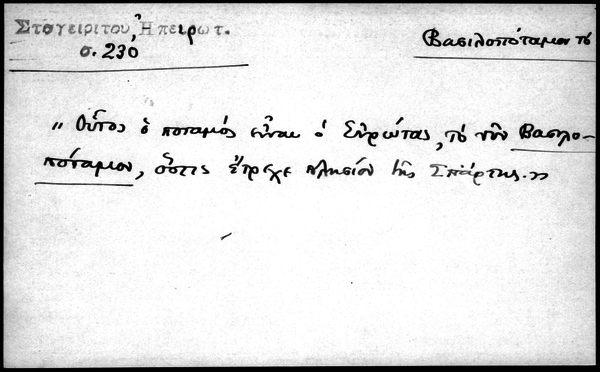 Σταγειρίτου, Ἠπειρωτ.
σ. 230
Βασιλοπόταμον τὸ
„ Οὗτος ὁ ποταμός εἶναι ὁ Εὐρώτας, τὸ νῦν Βασιλο-
πόταμον, ὅστις ἔτρεχε πλησίον τῆς Σπάρτης."